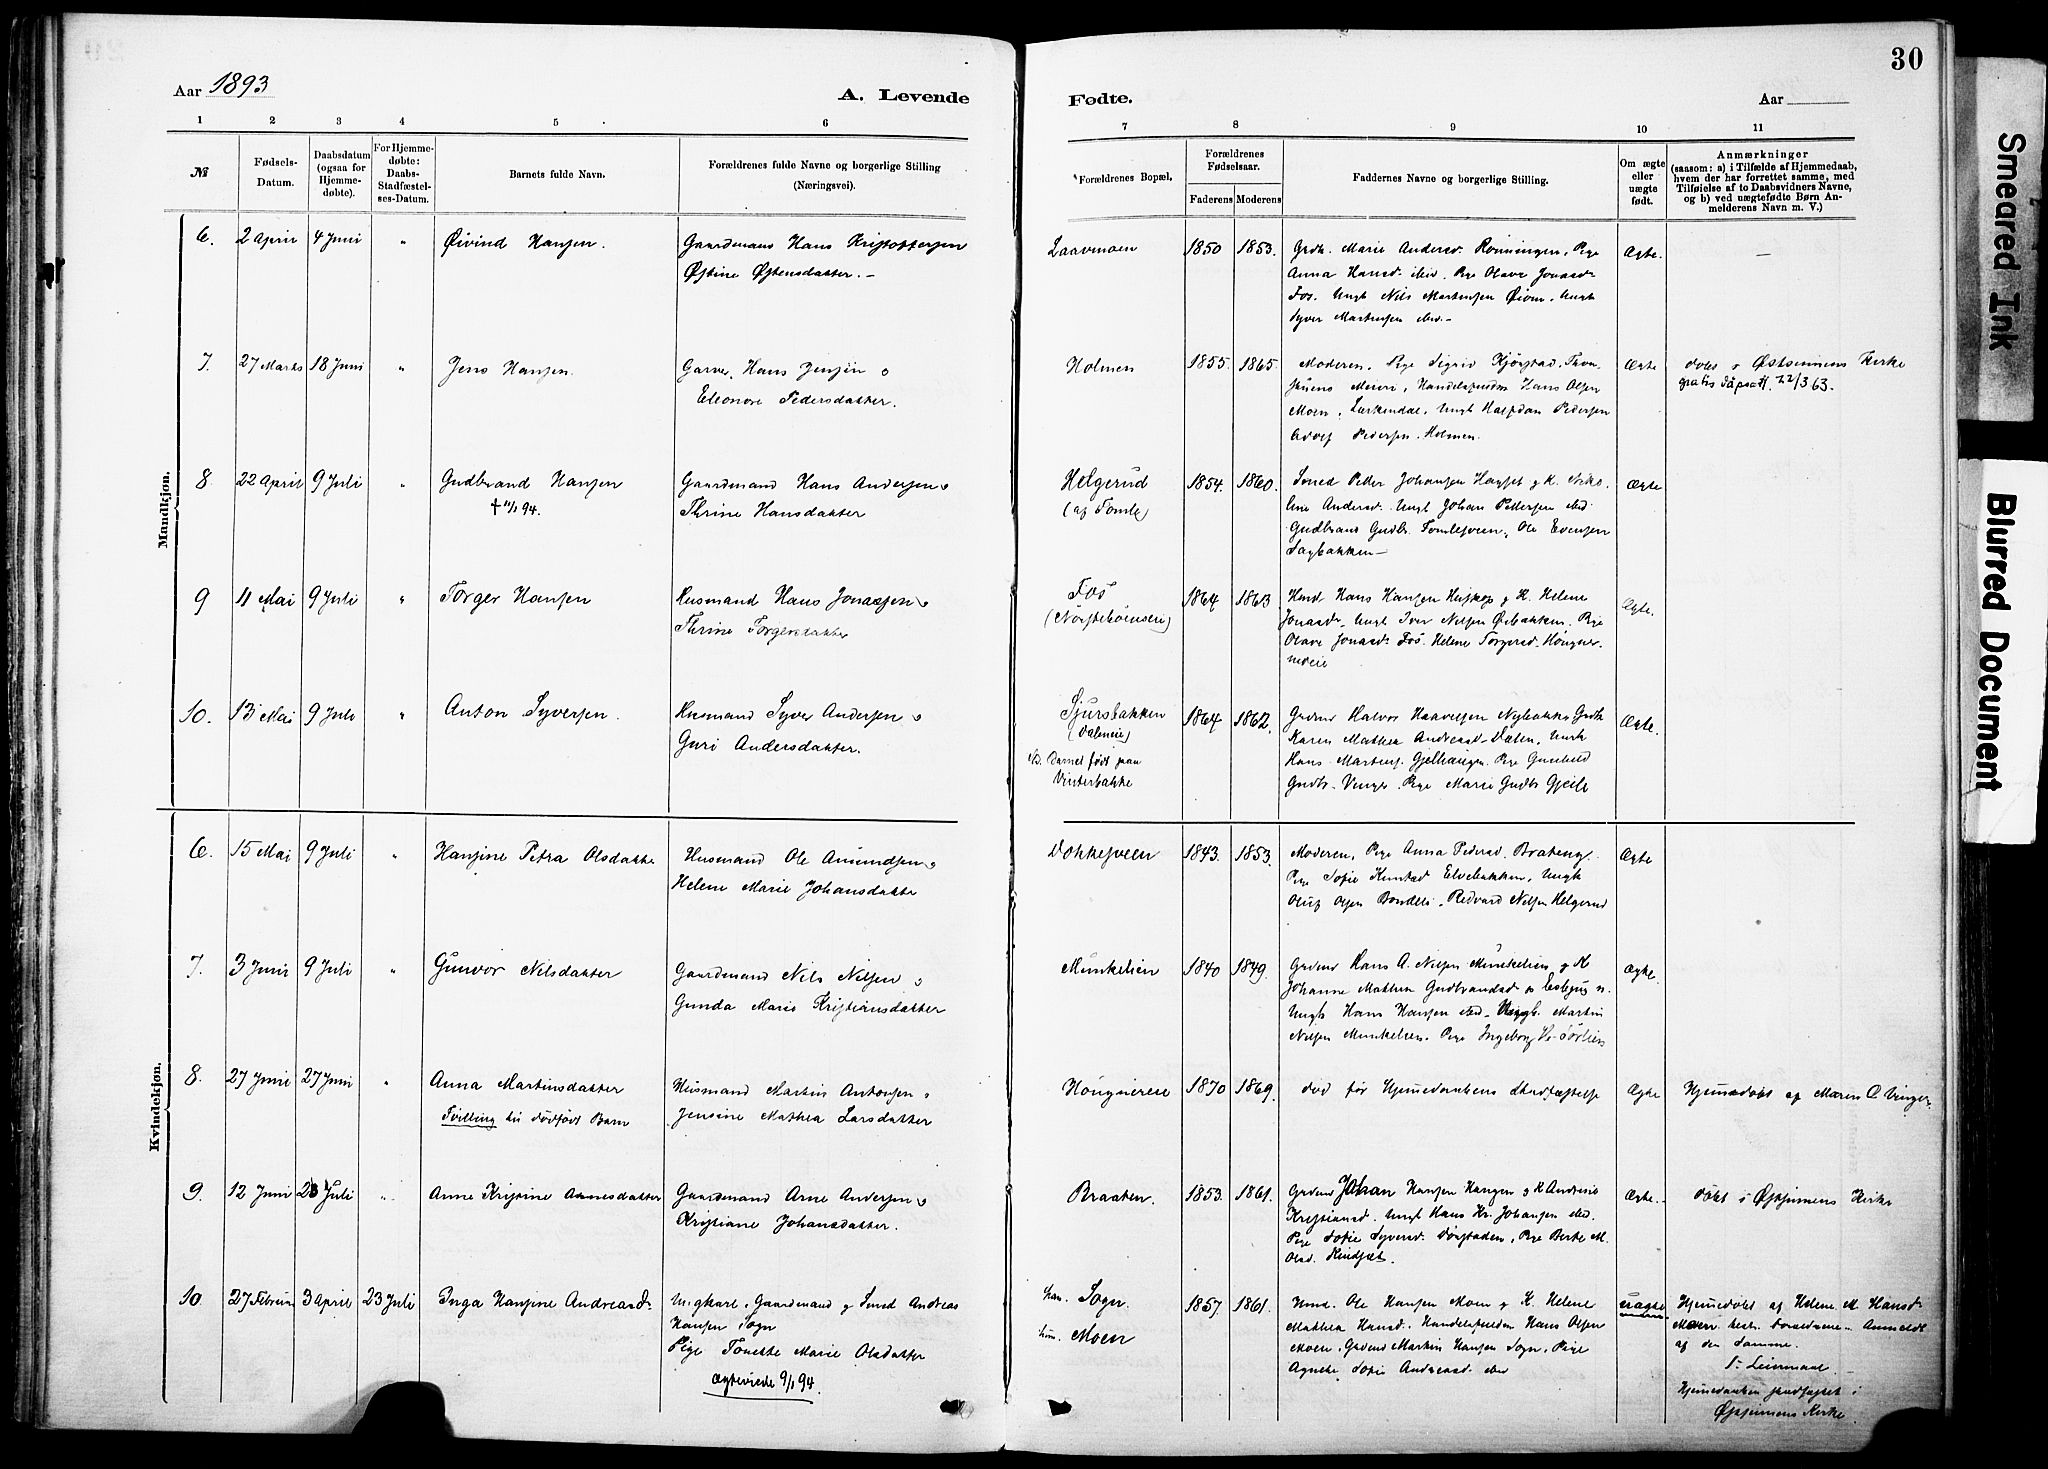 30
Aar 1893
A. Levende
Fødte.
Aar
1 2 3 4 5 6 7 8 9 10 11
№
Fødsels-
Datum.
Daabsdatum
(ogsaa for
Hjemme-
døbte).
For Hjemme-
døbte:
Daabs-
Stadfæstel-
ses-Datum.
Barnets fulde Navn.
Forældrenes fulde Navne og borgerlige Stilling
(Næringsvei).
Forældrenes Bopæl.
Forældrenes
Fødselsaar.
Faderens Moderens
Faddernes Navne og borgerlige Stilling.
Om ægte
eller
uægte
født.
Anmærkninger
(saasom: a) i Tilfælde af Hjemmedaab,
hvem der har forrettet samme, med
Tilføielse af to Daabsvidners Navne,
og b) ved uægtefødte Børn An-
melderens Navn m. V.)
Mandkjøn.
6. 2 April 4 Juni " Øivind Hansen.
Gaardmand Hans Kristoffersen
Østine Østensdatter.-
Laavmoen 1850 1853.
Grdk. Marie Andersd. Rønningen, Pige
Anna Hansd. ibid. Pige Olava Jonasd.
Fos. Ungk Nils Martinsen Øiom, Ungk
Syver Martinsen ibid.-
Ægte. —
7. 27 Marts 18 Juni " Jens Hansen.
Garver Hans Jensen o
Eleonore Pedersdatter.
Holmen 1855. 1865.
Moderen, Pige Sigrid Kjørstad, Thon,
Meieri, Handelsfuldm Hans Olsen
Moen, Lærkendal, Ungk Halfdan Pedersen
Adolf Pedersen, Holmen.
Ægte
døbt i Østsinnens Kirke
gratis dåpsatt. 22/3 63.
8. 22 April 9 Juli " Gudbrand Hansen
† 11/1 94.
Gaardmand Hans Andersen o
Thrine Hansdatter
Helgerud
(af Tomle)
1854. 1860.
Smed Peder Johansen Haugset g K. Niko-
line Andersd. Ungk Johan Pettersen ibid.
Gudbrand Gudbr. Tomlesveen, Ole Evensen
Sagbakken—
Ægte
9 11 Mai 9 Juli " Torger Hansen
Husmand Hans Jonassen o
Thrine Torgersdatter
Fos
1864 1863
Husd Hans Hansen g K. Helene
Jonasd. Ungk Iver Nilsen Øibakken. Pige
Olava Jonasd. Fos. Helene Torgersd. Høugner-
undeie
Ægte.
10. 13 Mai 9 Juli " Anton Syversen.
Husmand Syver Andersen o
Guri Andersdatter.
Sjursbakken
(Daleneie)
NB. Barnet født paa
Vinterbakke
1864 1862.
Grdmd Halvor Haavelsen Nybakke Grdk
Karen Mathea Andreasd- Dalen, Ungk
Hans Martins. Gjelhaugen. Pige Gunhild
Gudbr- Vinger. Pige Marie Gudbr Gjeile
Ægte.
Kvindekjøn.
6. 15 Mai 9 Juli " Hansine Petra Olsdatter
Husmand Ole Amundsen o
Helene Marie Johansdatter
Dokkesveen 1843. 1853.
Moderen, Pige Anna Pedersd. Brateng.
Pige Sofie Knutsd Elvebakken, Ungk
Oluf Olsen Bondeli. Redvard Nilsen Helgerud
Ægte
7. 3 Juni 9 Juli " Gunvor Nilsdatter
Gaardmand Nils Nilsen o
Gunda Marie Kristiansdatter
Munkelien 1840 1849.
Grdmd Hans A. Nilsen Munkelien g K
Johanne Mathea Gudbrandsd.
Ungk Hans Hansen ibid- Ungk. Martin
Nilsen Munkelien. Pige Ingeborg H. Sørlien
Ægte.
8. 27 Juni 27 Juni " Anna Martinsdatter
Tvilling til dødfødt Barn
Husmand Martin Antonsen o
Jensine Mathea Larsdatter
Høugnereie 1870 1869.
død før Hjemmedaabens Stadfæstelse
Ægte
Hjemmedøbt af Maren O. Vinger
9. 12 Juni 23 Juli " Anne Kristine Arnesdatter
Gaardmand Arne Andersen o
Kristiane Johansdatter.
Braaten. 1853. 1861.
Grdmd Johan Hansen Haugen g K Andrine
Kristiansd. Ungk Hans Kr. Johansen ibid.
Pige Sofie Syversd. Pige Berte M.
Olsd.
Ægte.
døbt i Østsinnens Kirke
10. 27 Februar 3 April 23 Juli Inga Hansine Andreasd.
Ungkarl, Gaardmand g Smed Andreas
Hansen Sogn
Pige Tonette Marie Olsdatter
Ægteviede 9/1 94.
han. Sogn.
hun. Moen
1857 1861.
Husmd. Ole Hansen Moen g K. Helene
Mathea Hansd. Handelsfuldm Hans Olsen
Moen, Grdmd Martin Hansen Sogn, Pige
Agnethe Sofie Andreasd ibid
uægte
Hjemmedøbt af Helene M. Hansd
Moen Anmeldt
af den samme.
1ste Leiermaal
Hjemmedaaben stadfæstet i
Østsinnens Kirke.
Smeared Ink
Blurred Document